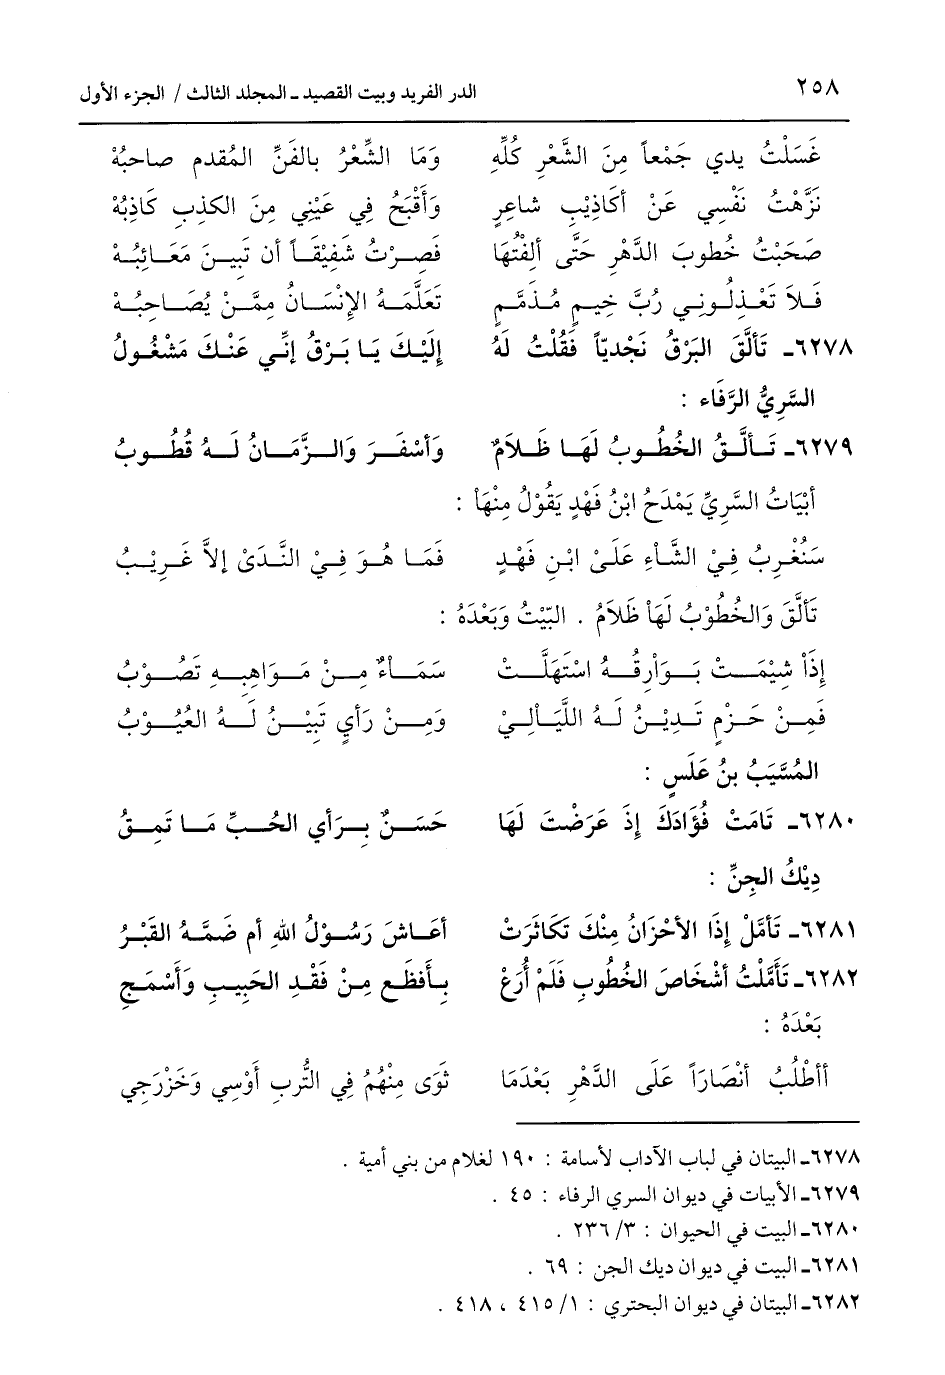 ٢٥٨ الدر الفريد وبيت القصيد ـ المجلد الثالث / الجزء الأول
غَسَلْتُ يدي جَمْعاً مِنَ الشَّعْرِ كُلِّهِ وَمَا الشِّعْرُ بالفَنِّ المُقدم صاحبُهْ
نَزَّهْتُ نَفْسِي عَنْ أكَاذِيْبِ شاعِرٍ وَأَقْبَحُ فِي عَيْنِي مِنَ الكذبِ كَاذِبُهْ
صَحَبْتُ خُطوبَ الدَّهْرِ حَتَّى ألِفْتُهَا فَصِرْتُ شَفِيْقَاً أن تَبِينَ مَعَائِبُهْ
فَلاَ تَعْذِلُونِي رُبَّ خِيمٍ مُذَمَّمٍ تَعَلَّمَهُ الإِنْسَانُ مِمَّنْ يُصَاحِبُهْ
٦٢٧٨ـ تَألَّقَ البَرْقُ نَجْديّاً فَقُلْتُ لَهُ إلَيْكَ يَا بَرْقُ إنِّي عَنْكَ مَشْغُولُ
السَّرِيُّ الرَّفَاء :
٦٢٧٩ـ تَألَّقُ الخُطُوبُ لَهَا ظَلاَمٌ وَأسْفَرَ وَالزَّمَانُ لَهُ قُطُوبُ
أبْيَاتُ السَّرِيِّ يَمْدَحُ ابْنُ فَهْدٍ يَقُوْلُ مِنْهَا :
سَنُغْرِبُ فِيْ الثَّنَاءِ عَلَىْ ابْنِ فَهْدٍ فَمَا هُوَ فِيْ النَّدَىْ إلاَّ غَرِيْبُ
تَألَّقَ وَالخُطُوْبُ لَهَا ظَلامُ . البَيْتُ وَبَعْدَهُ :
إذَا شِيْمَتْ بَوَارِقُهُ اسْتَهَلَّتْ سَمَاءٌ مِنْ مَوَاهِبِهِ تَصُوْبُ
فَمِنْ حَزْمٍ تَدِيْنُ لَهُ اللَّيَالِيْ وَمِنْ رَأيٍ تَبِيْنُ لَهُ الغُيُوْبُ
المُسَّيَبُ بنُ عَلَسٍ :
٦٢٨٠ـ تَامَتْ فُؤَادَكَ إذَ عَرَضْتَ لَهَا حَسَنٌ بِرَأي الحُبِّ مَا تَمِقُ
دِيْكُ الجِنِّ :
٦٢٨١ـ تَأمَّلْ إذَا الأحْزَانُ مِنْكَ تَكَاثَرَتْ أعَاشَ رَسُوْلُ اللهِ أم ضَمَّهُ القَبْرُ
٦٢٨٢ـ تَأَمَّلْتُ أشْخَاصَ الخُطُوبِ فَلَمْ أُرَعْ بِأفظَعِ مِنْ فَقْدِ الحَبِيبِ وَأَسْمَجِ
بَعْدَهُ :
أأطْلُبُ أنْصَارَاً عَلَى الدَّهْرِ بَعْدَمَا ثَوَى مِنْهُمُ فِي التُّربِ أَوْسِي وَخَزْرَجِي
٦٢٧٨ـ البيتان في لباب الآداب لأسامة : ١٩٠ لغلام من بني أمية .
٦٢٧٩ـ الأبيات في ديوان السري الرفاء : ٤٥ .
٦٢٨٠ـ البيت في الحيوان : ٣/ ٢٣٦ .
٦٢٨١ـ البيت في ديوان ديك الجن : ٦٩ .
٦٢٨٢ـ البيتان في ديوان البحتري : ١/ ٤١٥ ، ٤١٨ .